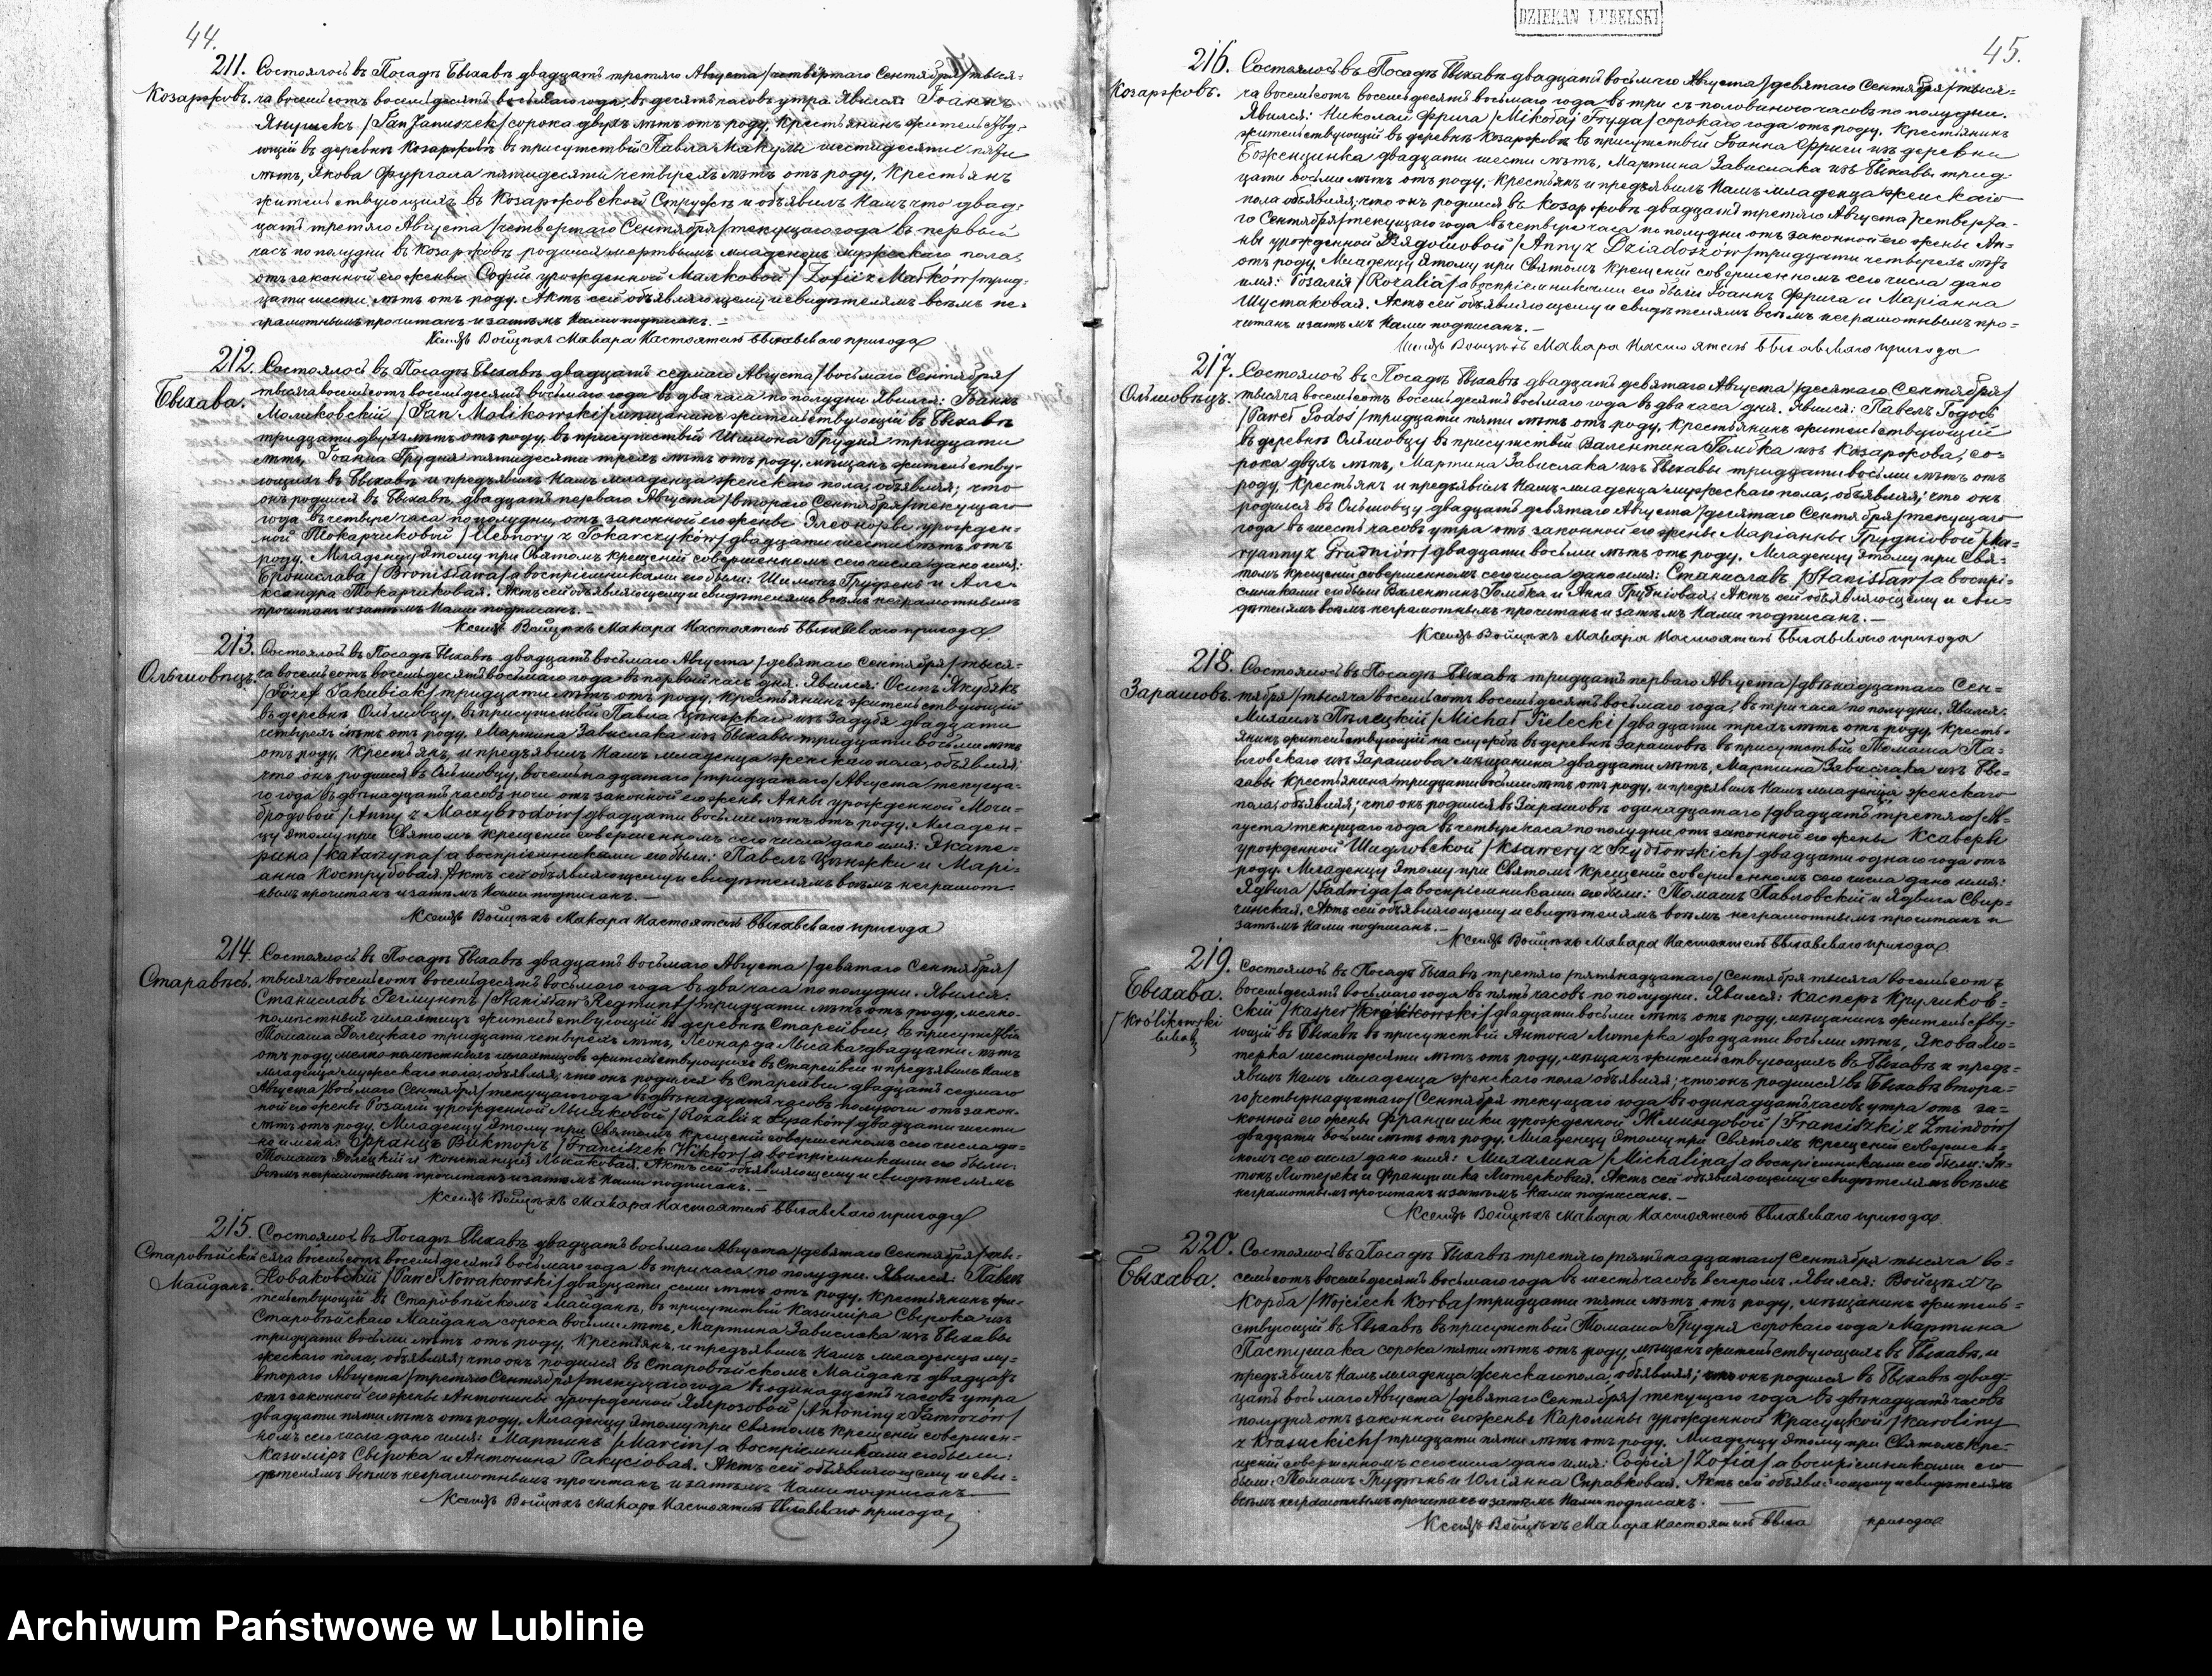 44.
211. Состоялось въ Посадѣ Быхавѣ двадцать третьяго Августа /четвёртаго Сентября/ тыся-
Козаржовъ. ча восемьсотъ восемьдесятъ восьмаго года, въ десять часовъ утра. Явился: Іоаннъ
Янушекъ /Jan Januszek/ сорока двухъ лѣтъ отъ роду, крестьянинъ жительству-
ющій въ деревнѣ Козаржовѣ въ присутствіи Павла Макули шестидесяти пяти
лѣтъ, Якова Фургала пятидесяти четырехъ лѣтъ отъ роду, крестьянъ
жительствующихъ въ Козаржовской и объявилъ Намъ что двад-
цать третьяго Августа /четвертаго Сентября/ текущаго года въ первый
часъ по полудни въ Козаржовѣ родился мертвымъ младенецъ мужескаго пола,
отъ законной его жены Софіи урожденной Малковой /Zofii z Małków/ трид-
цати шести лѣтъ отъ роду. Актъ сей объявляющему и свидѣтелямъ всѣмъ не-
грамотнымъ прочитанъ и затѣмъ Нами подписанъ.—
Ксендзъ Войцѣхъ Махара Настоятель Быхавскаго прихода
212. Состоялось въ Посадѣ Быхавѣ двадцать седмаго Августа /восьмаго Сентября/
Быхава. тысяча восемьсотъ восемьдесятъ восьмаго года въ два часа по полудни Явился: Іоаннъ
Моликовскій /Jan Molikowski/ мѣщанинъ жительствующій въ Быхавѣ
тридцати двухъ лѣтъ отъ роду, въ присутствіи Шимона Грудня тридцати
лѣтъ, Іоанна Грудня пятидесяти трехъ лѣтъ отъ роду, мѣщанъ жительству-
ющихъ въ Быхавѣ и предъявилъ Намъ младенца женскаго пола, объявляя; что
онъ родился въ Быхавѣ, двадцать перваго Августа /втораго Сентября/ текущаго
года въ четыре часа по полудни, отъ законной его жены Элеоноры урожден-
ной Токарчиковой /Uleonory z Tokarczyków/ двадцати шести лѣтъ отъ
роду. Младенцу этому при Святомъ Крещеніи совершенномъ сего числа дано имя:
Брониславa /Bronisława/ а воспріемниками его были: Шимонъ Грудзень и Але-
ксандра Токарчиковая. Актъ сей объявляющему и свидѣтелямъ всѣмъ неграмотнымъ
прочитанъ и затѣмъ Нами подписанъ.—
Ксендзъ Войцѣхъ Махара Настоятель Быхавскаго прихода
213. Состоялось въ Посадѣ Быхавѣ двадцать восьмаго Августа /девятаго Сентября/ тыся-
Ольшовецъ. ча восемьсотъ восемьдесятъ восьмаго года въ первой часъ дня. Явился: Осипъ Якубякъ
/Józef Jakubiak/ тридцати лѣтъ отъ роду, крестьянинъ жительствующій
въ деревнѣ Ольшовцу, въ присутствіи Павла изъ двадцати
четырехъ лѣтъ отъ роду, Мартина Завислака изъ Быхавы тридцати восьми лѣтъ
отъ роду, крестьянъ, и предъявилъ Намъ младенца женскаго пола, объявляя;
что онъ родился въ Ольшовцу, восемьнадцатаго /тридцатаго/ Августа текуща-
го года въ двѣнадцать часовъ ночи отъ законной его жены Анны урожденной Мочи-
бродовой /Anny z Moczybrodów/ двадцати восьми лѣтъ отъ роду. Младен-
цу этому при Святомъ Крещеніи совершенномъ сего числа дано имя: Екате-
рина /Katarzyna/ а воспріемниками его были: Павелъ и Марі-
анна Кострубовая. Актъ сей объявляющему и свидѣтелямъ всѣмъ неграмот-
нымъ прочитанъ и затѣмъ Нами подписанъ.—
Ксендзъ Войцѣхъ Махара Настоятель Быхавскаго прихода
214. Состоялось въ Посадѣ Быхавѣ двадцать восьмаго Августа /девятаго Сентября/
Старавесь. тысяча восемьсотъ восемьдесятъ восьмаго года въ два часа по полудни. Явился:
Станиславъ Регмунтъ /Stanisław Regmunt/ тридцати лѣтъ отъ роду, мелко-
помѣстный шляхтицъ жительствующій въ деревнѣ Старейвси, въ присутствіи
Томаша Долецкаго тридцати четырехъ лѣтъ, Леонарда Лысака двадцати лѣтъ
отъ роду, мелко-помѣстныхъ шляхтицовъ жительствующихъ въ Старейвси и предъявилъ Намъ
младенца мужескаго пола, объявляя; что онъ родился въ Старейвси двадцать седмаго
Августа /восьмаго Сентября/ текущаго года въ двѣнадцать часовъ полуночи отъ закон-
ной его жены Розаліи урожденной Лысаковой /Rozalii z Łysaków/ двадцати шести
лѣтъ отъ роду. Младенцу этому при Святомъ Крещеніи совершенномъ сего числа да-
но имена: Францъ Викторъ /Franciszek Wiktor/ а воспріемниками его были:
Томашъ Долецкій и Констанція Лысаковая. Актъ сей объявляющему и свидѣтелямъ
всѣмъ неграмотнымъ прочитанъ и затѣмъ Нами подписанъ.—
Ксендзъ Войцѣхъ Махара Настоятель Быхавскаго прихода
215. Состоялось въ Посадѣ Быхавѣ двадцать восьмаго Августа /девятаго Сентября/ ты-
Старовѣйскій сяча восемьсотъ восемьдесятъ восьмаго года въ три часа по полудни. Явился: Павелъ
Майданъ. Новаковскій /Paweł Nowakowski/ двадцати семи лѣтъ отъ роду, крестьянинъ жи-
тельствующій въ Старовѣйскомъ Майданѣ, въ присутствіи Казиміра Свѣрока изъ
Старовѣйскаго Майдана сорока восьми лѣтъ, Мартина Завислака изъ Быхавы
тридцати восьми лѣтъ отъ роду, крестьянъ, и предъявилъ Намъ младенца му-
жескаго пола, объявляя; что онъ родился въ Старовѣйскомъ Майданѣ двадцать
втораго Августа /третьяго Сентября/ текущаго года въ одинадцать часовъ утра
отъ законной его жены Антонины урожденной Ямрозовой /Antoniny z Jamrozów/
двадцати пяти лѣтъ отъ роду. Младенцу этому при Святомъ Крещеніи совершен-
номъ сего числа дано имя: Мартинъ /Marcin/ а воспріемниками его были:
Казиміръ Свѣрока и Антонина Ракусіовая. Актъ сей объявляющему и сви-
дѣтелямъ всѣмъ неграмотнымъ прочитанъ и затѣмъ Нами подписанъ.—
Ксендзъ Войцѣхъ Махара Настоятель Быхавскаго прихода
DZIEKAN LUBELSKI
45.
216. Состоялось въ Посадѣ Быхавѣ двадцать восьмаго Августа /девятаго Сентября/ тыся-
Козаржовъ. ча восемьсотъ восемьдесятъ восьмаго года въ три съ половиною часовъ по полудни.
Явился: Николай Фрыга /Mikołaj Fryga/ сорокаго года отъ роду, крестьянинъ
жительствующій въ деревнѣ Козаржовѣ въ присутствіи Іоанна Фриги изъ деревни
двадцати шести лѣтъ, Мартина Завислака изъ Быхавы трид-
цати восьми лѣтъ отъ роду, крестьянъ и предъявилъ Намъ младенца женскаго
пола объявляя; что онъ родился въ Козаржовѣ двадцать третьяго Августа /четверта-
го Сентября/ текущаго года въ четыре часа по полудни отъ законной его жены Ан-
ны урожденной Дзядошовой /Anny z Dziadoszów/ тридцати четырехъ лѣтъ
отъ роду. Младенцу этому при Святомъ Крещеніи совершенномъ сего числа дано
имя: Розалія /Rozalia/ а воспріемниками его были Іоаннъ Фрига и Маріанна
Шустаковая. Актъ сей объявляющему и свидѣтелямъ всѣмъ неграмотнымъ про-
читанъ и затѣмъ Нами подписанъ.—
Ксендзъ Войцѣхъ Махара Настоятель Быхавскаго прихода
217. Состоялось въ Посадѣ Быхавѣ двадцать девятаго Августа /десятаго Сентября/
Ольшовецъ. тысяча восемьсотъ восемьдесятъ восьмаго года въ два часа дня. Явился: Павелъ Годось
/Paweł Godoś/ тридцати пяти лѣтъ отъ роду, крестьянинъ жительствующій
въ деревнѣ Ольшовцу въ присутствіи Валентина Голибка изъ Козаржова, со-
рока двухъ лѣтъ, Мартина Завислака изъ Быхавы тридцати восьми лѣтъ отъ
роду, крестьянъ и предъявилъ Намъ младенца мужескаго пола, объявляя; что онъ
родился въ Ольшовцу двадцать девятаго Августа /десятаго Сентября/ текущаго
года въ шесть часовъ утра отъ законной его жены Маріанны Грудніовой /Ma-
ryanny z Grudniów/ двадцати восьми лѣтъ отъ роду. Младенцу этому при Свя-
томъ Крещеніи совершенномъ сего числа дано имя: Станиславъ /Stanisław/ а воспрі-
емниками его были Валентинъ Голибка и Анна Грудніовая. Актъ сей объявляющему и сви-
дѣтелямъ всѣмъ неграмотнымъ прочитанъ и затѣмъ Нами подписанъ.—
Ксендзъ Войцѣхъ Махара Настоятель Быхавскаго прихода
218. Состоялось въ Посадѣ Быхавѣ тридцать перваго Августа /двѣнадцатаго Сен-
Зарашовъ. тября/ тысяча восемьсотъ восемьдесятъ восьмаго года, въ три часа по полудни. Явился:
Михаилъ Пѣлецкій /Michał Pielecki/ двадцати трехъ лѣтъ отъ роду, кресть-
янинъ жительствующій на службѣ въ деревнѣ Зарашовѣ въ присутствіи Томаша Па-
вловскаго изъ Зарашова мѣщанина двадцати лѣтъ, Мартина Завислака изъ Бы-
хавы крестьянина тридцати восьми лѣтъ отъ роду, и предъявилъ Намъ младенца женскаго
пола, объявляя; что онъ родился въ Зарашовѣ одинадцатаго /двадцать третьяго/ Ав-
густа текущаго года въ четыре часа по полудни, отъ законной его жены Ксаверы
урожденной Шидловской /Ksawery z Szydłowskich/ двадцати однаго года отъ
роду. Младенцу этому при Святомъ Крещеніи совершенномъ сего числа дано имя:
Ядвига /Jadwiga/ а воспріемниками его были: Томашъ Павловскій и Ядвига Свер-
чинская. Актъ сей объявляющему и свидѣтелямъ всѣмъ неграмотнымъ прочитанъ и
затѣмъ Нами подписанъ.—
Ксендзъ Войцѣхъ Махара Настоятель Быхавскаго прихода
219. Состоялось въ Посадѣ Быхавѣ третьяго /пятнадцатаго/ Сентября тысяча восемьсотъ
Быхава. восемьдесятъ восьмаго года въ пять часовъ по полудни. Явился: Касперъ Круликов-
/Królikowski скій /Kasper Królikowski/ двадцати восьми лѣтъ отъ роду, мѣщанинъ жительству-
ющій въ Быхавѣ въ присутствіи Антона Мотерка двадцати восьми лѣтъ, Якова Мо-
терка шестидесяти лѣтъ отъ роду, мѣщанъ жительствующихъ въ Быхавѣ и предъ-
явилъ Намъ младенца женскаго пола объявляя; что онъ родился въ Быхавѣ втора-
го /четырнадцатаго/ Сентября текущаго года въ одинадцать часовъ утра отъ за-
конной его жены Францишки урожденной Жминдовой /Franciszki z Żmindów/
двадцати восьми лѣтъ отъ роду. Младенцу этому при Святомъ Крещеніи совершен-
номъ сего числа дано имя: Михалина /Michalina/ а воспріемниками его были: Ан-
тонъ Мотерекъ и Францишка Мотерковая. Актъ сей объявляющему и свидѣтелямъ всѣмъ
неграмотнымъ прочитанъ и затѣмъ Нами подписанъ.—
Ксендзъ Войцѣхъ Махара Настоятель Быхавскаго прихода.
220. Состоялось въ Посадѣ Быхавѣ третьяго /пятнадцатаго/ Сентября тысяча во-
Быхава. семьсотъ восемьдесятъ восьмаго года въ шесть часовъ вечеромъ. Явился: Войцѣхъ
Корба /Wojciech Korba/ тридцати пяти лѣтъ отъ роду, мѣщанинъ житель-
ствующій въ Быхавѣ въ присутствіи Томаша Грудня сорокаго года Мартина
Пастушака сорока пяти лѣтъ отъ роду, мѣщанъ жительствующихъ въ Быхавѣ, и
предъявилъ Намъ младенца женскаго пола, объявляя; что онъ родился въ Быхавѣ двад-
цать восьмаго Августа /девятаго Сентября/ текущаго года въ двѣнадцать часовъ
полудня отъ законной его жены Каролины урожденной Красуцкой /Karoliny
z Krasuckich/ тридцати пяти лѣтъ отъ роду. Младенцу этому при Святомъ Кре-
щеніи совершенномъ сего числа дано имя: Софія /Zofia/ а воспріемниками его
были: Томашъ Грудзень и Юліянна Справковая. Актъ сей объявляющему и свидѣтелямъ
всѣмъ неграмотнымъ прочитанъ и затѣмъ Нами подписанъ.—
Ксендзъ Войцѣхъ Махара Настоятель Быха прихода
Archiwum Państwowe w Lublinie